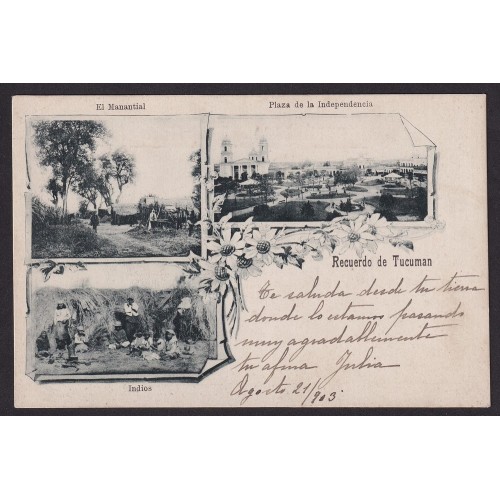 El Manantial
Plaza de la Independencia
Recuerdo de Tucuman
Te saluda desde tu tierra
donde lo estamos pasando
muy agradablemente
tu afma Julia
Agosto 21/903
Indios